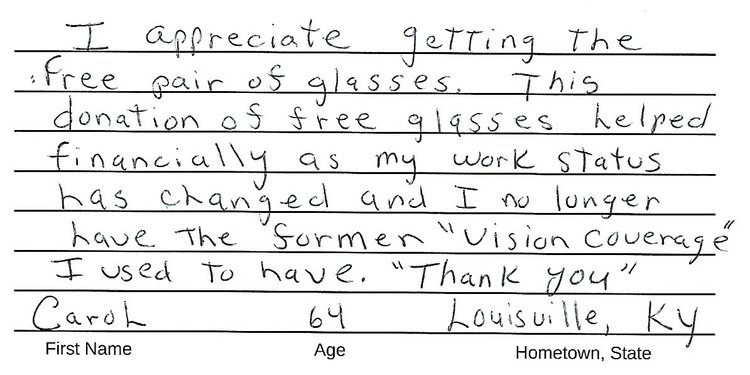 I appreciate getting the
free pair of glasses. This
donation of free glasses helped
financially as my work status
has changed and I no longer
have the former "Vision Coverage"
I used to have. "Thank you"
Carol 64 Louisville, KY
First Name Age Hometown, State